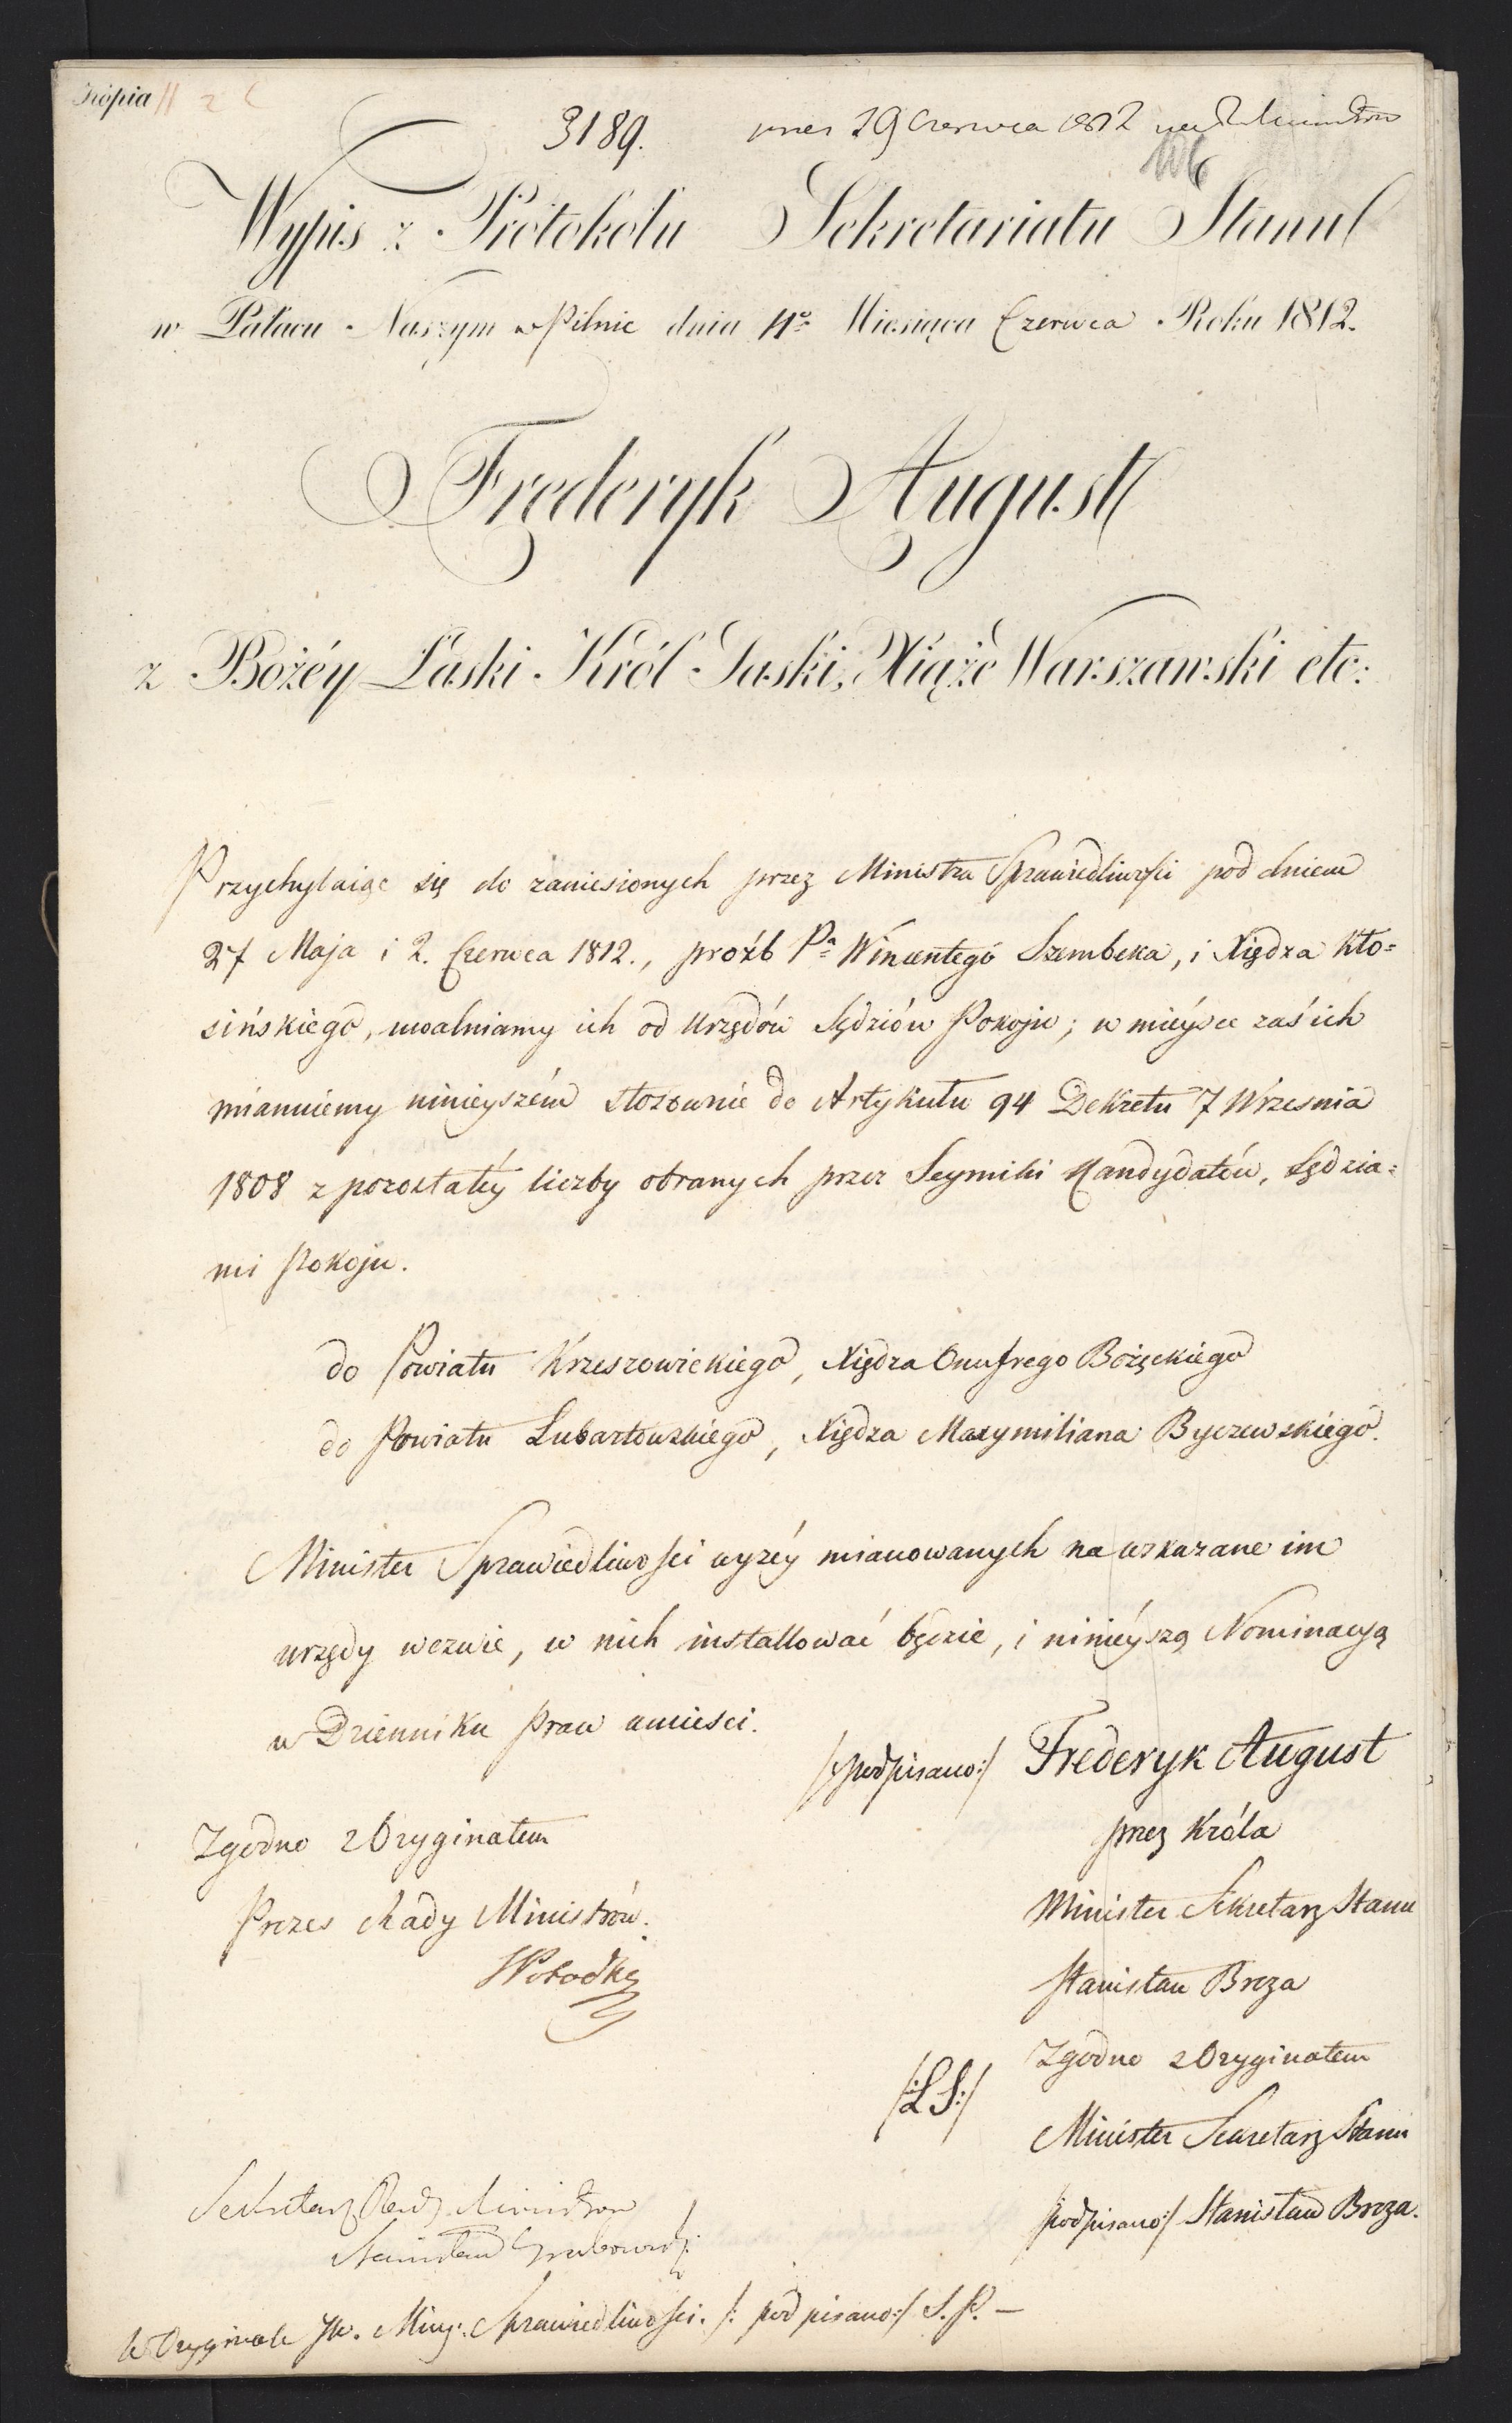 Kópia
3189.
pres 29 Czerwca 1812
106
Wypis z Protokółu Sekretariatu Stanu
w Pałacu Naszym w Pilnic dnia 11º Miesiąca Czerwca Roku 1812.
Frederyk August
z Bożéy Łaski Król Saski, Xiąże Warszawski etc:
Przychylaiąc się do zaniesionych przez Ministra Sprawiedliwości pod dniem
27 Maja i 2. Czerwca 1812., proźb Pª Wincentego Szembeka, i Xiędza Kło=
sińskiego, uwalniamy ich od Urzędów Sędziów Pokoju; w mieysce zaś ich
mianuiemy ninieyszém stosownie do Artykułu 94 Dekretu 7 Wrzesnia
1808 z pozostałéy liczby obranych przez Seymiki Kandydatów, Sędzia=
mi Pokoju.
do Powiatu Krzeszowickiego, Xiędza Onufrego Bożęckiego
do Powiatu Lubartowskiego, Xiędza Maxymiliana Byczewskiego.
Minister Sprawiedliwości wyżéy mianowanych na wskazane im
urzędy wezwie, w nich installować będzie, i ninieyszą Nominacyą
w Dzienniku Praw umiesci.
/:podpisano:/ Frederyk August
przez Króla
Zgodno z Oryginałem
Minister Sekretarz Stanu
Prezes Rady Ministrów.
Stanisław Breza
SPotocki
Zgodno z Oryginałem
/:LS:/
Minister Sekretarz Stanu
podpisano:/ Stanisław Breza.
Sekretarz Rady Ministrów
Stanisław Grabowski
W Oryginale JW. Mins: Sprawiedliwości. /: podpisano:/ S. P. —